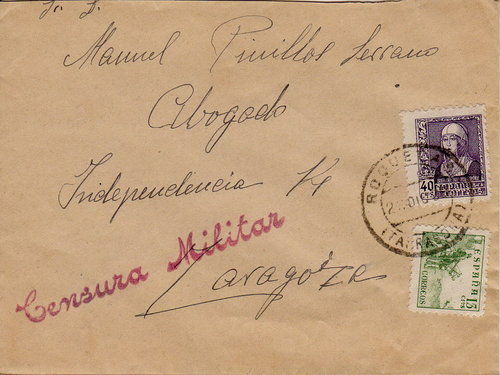 Sr. D.
Manuel Pinillos Serrano
Abogado
Independencia 14
Censura Militar
Zaragoza
40
ROQUETAS
(TARRAGONA)
ESPAÑA 15
CTS
CORREOS